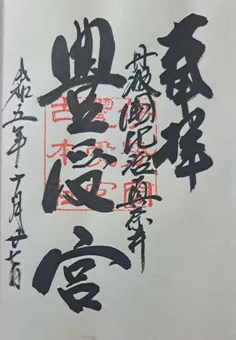 奉拝
丹波國比治真奈井
豊受宮
令和五年十月廿七日